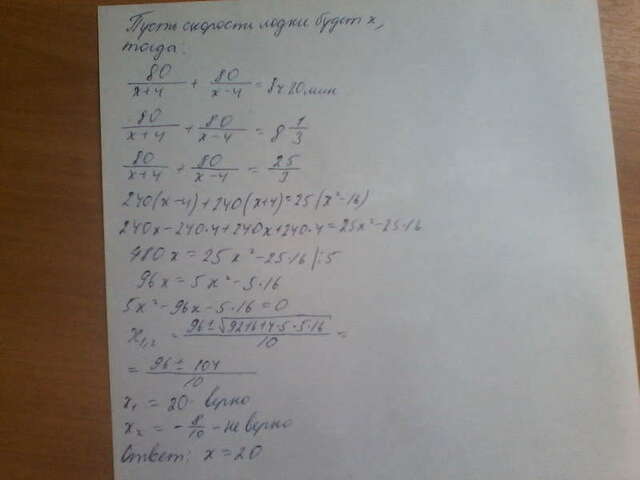 Пусть скорость лодки будет x,
тогда:
80/(x+4) + 80/(x-4) = 8ч 20 мин
80/(x+4) + 80/(x-4) = 8 1/3
80/(x+4) + 80/(x-4) = 25/3
240(x-4)+240(x+4)=25(x²-16)
240x-240·4+240x+240·4=25x²-25·16
480x = 25x²-25·16 |:5
96x = 5x²-5·16
5x²-96x-5·16=0
x₁,₂ = (96±√(9216+4·5·5·16))/10 =
= (96±104)/10
x₁ = 20 - верно
x₂ = -8/10 - не верно
Ответ: x=20